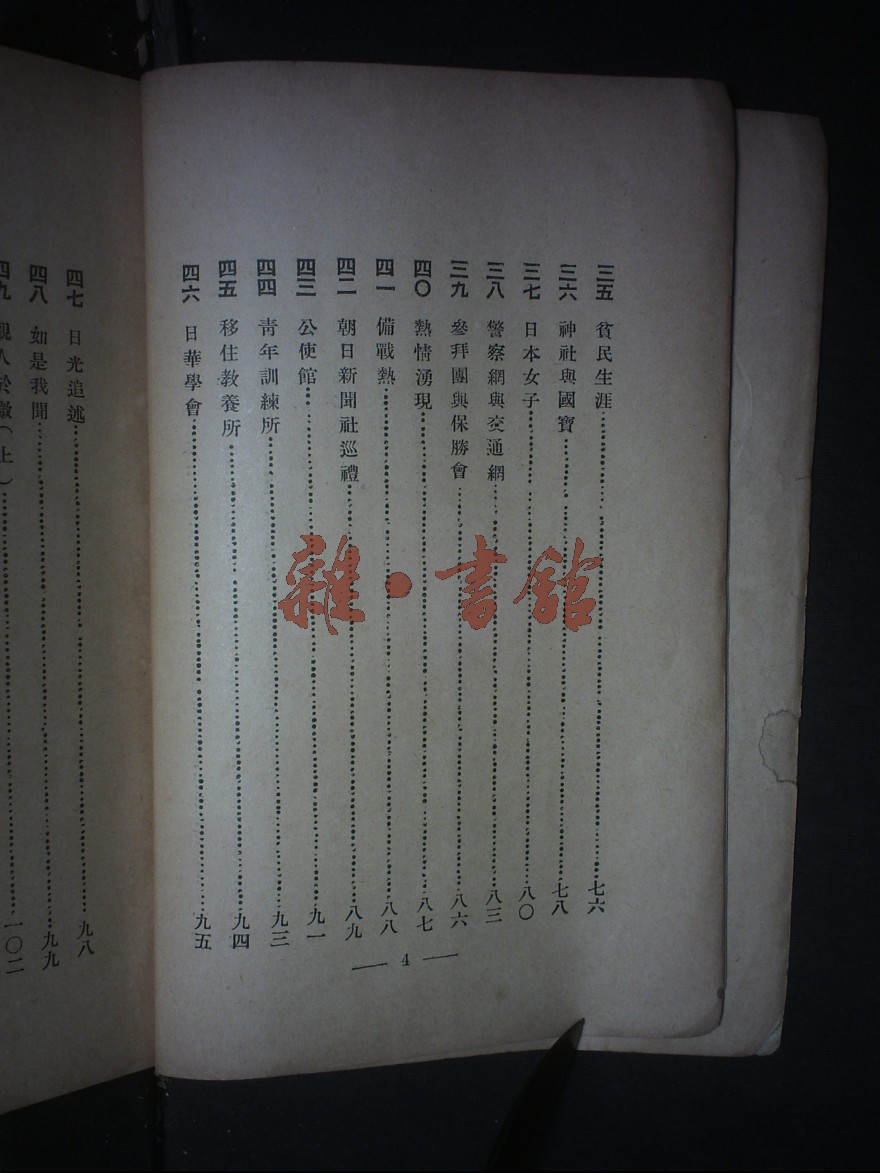 三五 貧民生涯 七六
三六 神社與國寶 七八
三七 日本女子 八〇
三八 警察網與交通網 八三
三九 參拜團與保勝會 八六
四〇 熱情湧現 八七
四一 備戰熱 八八
四二 朝日新聞社巡禮 八九
四三 公使館 九一
四四 靑年訓練所 九三
四五 移住教養所 九四
四六 日華學會 九五
— 4 —
四七 日光追述 九八
四八 如是我聞 九九
四九 觀人於微(上) 一〇二
雜·書館